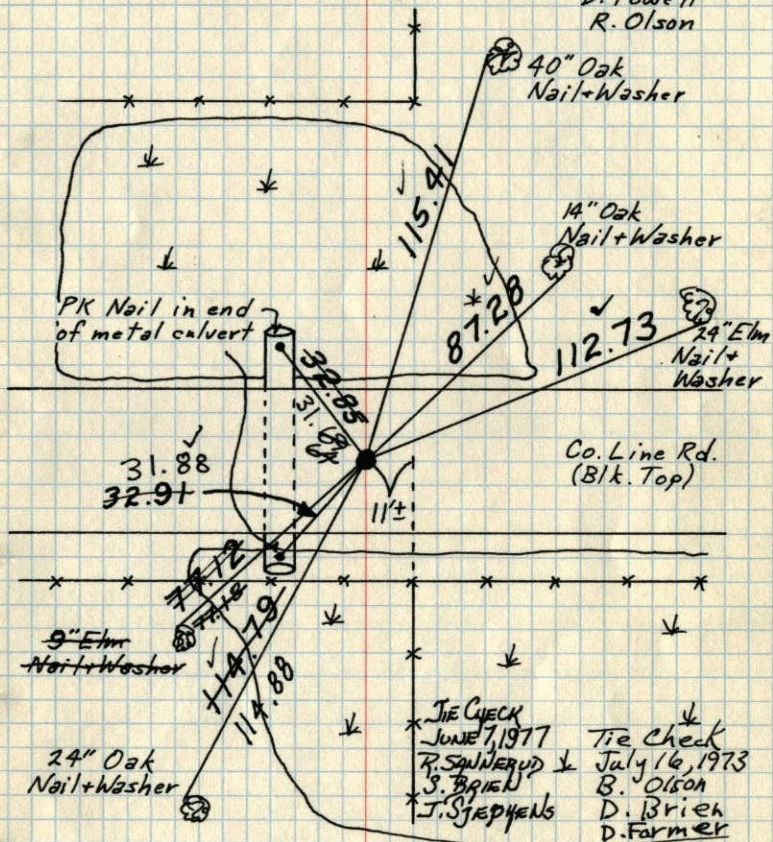 R. Olson
40" Oak
Nail+Washer
115.41
14" Oak
Nail+Washer
87.28
112.73
24" Elm
Nail+
Washer
PK Nail in end
of metal culvert
32.85
31.69
31.88
32.91
Co. Line Rd.
(Blk. Top)
11'±
77.18
9" Elm
Nail+Washer
114.79
114.88
24" Oak
Nail+Washer
TIE CHECK
JUNE 7, 1977
R. SANNERUD
S. BRIEN
J. STEPHENS
Tie Check
July 16, 1973
B. Olson
D. Brien
D. Farmer